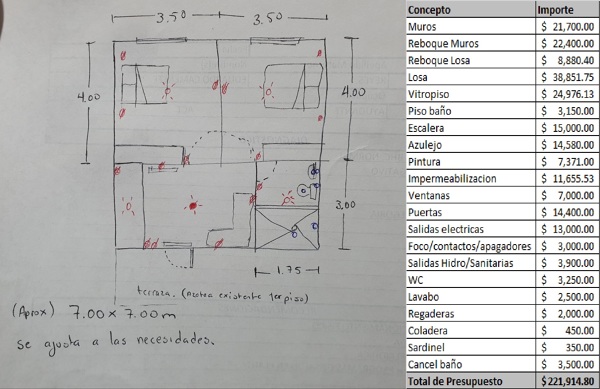 3.50 3.50
4.00
4.00
3.00
1.75
terraza. (azotea existente 1er piso)
(Aprox) 7.00 x 7.00m
se ajusta a las necesidades.
Concepto Importe
Muros $ 21,700.00
Reboque Muros $ 22,400.00
Reboque Losa $ 8,880.40
Losa $ 38,851.75
Vitropiso $ 24,976.13
Piso baño $ 3,150.00
Escalera $ 15,000.00
Azulejo $ 14,580.00
Pintura $ 7,371.00
Impermeabilizacion $ 11,655.53
Ventanas $ 7,000.00
Puertas $ 14,400.00
Salidas electricas $ 13,000.00
Foco/contactos/apagadores $ 3,000.00
Salidas Hidro/Sanitarias $ 3,900.00
WC $ 3,250.00
Lavabo $ 2,500.00
Regaderas $ 2,000.00
Coladera $ 450.00
Sardinel $ 350.00
Cancel baño $ 3,500.00
Total de Presupuesto $221,914.80